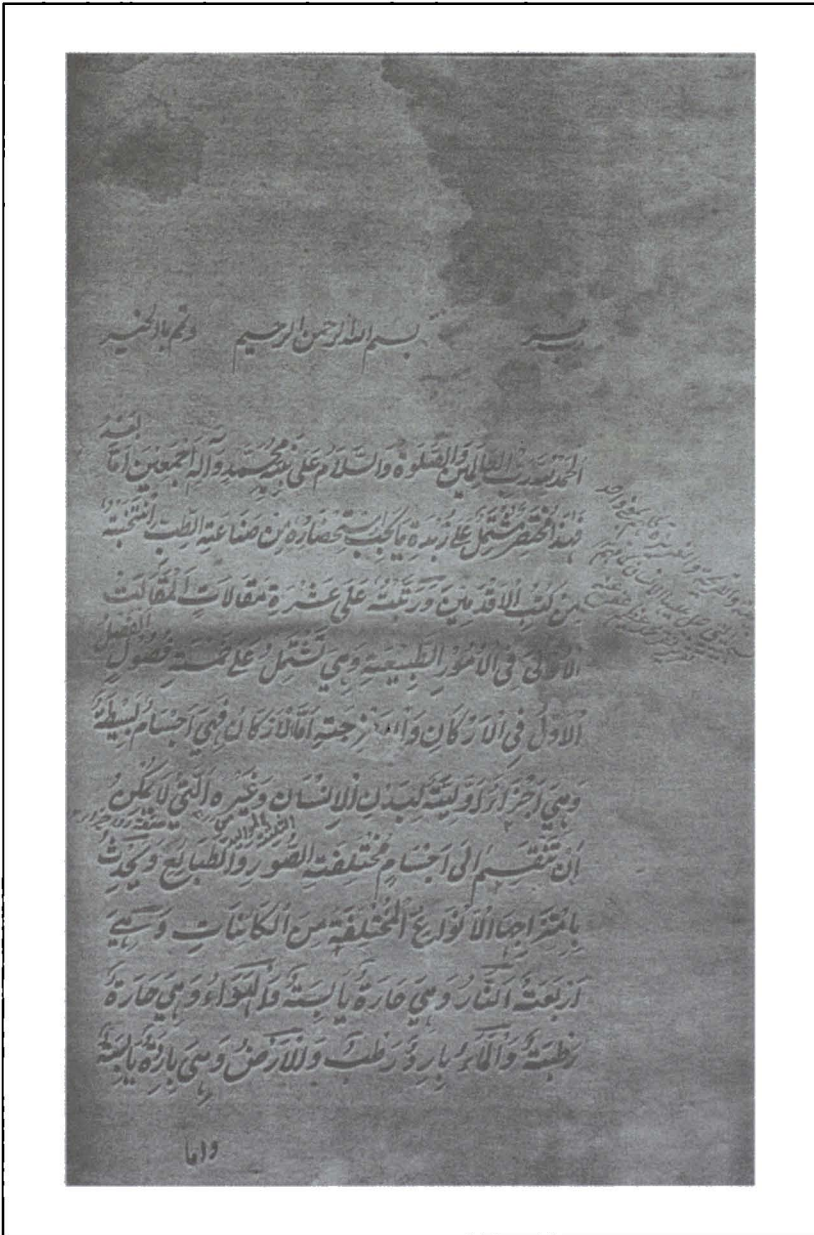 بسم الله الرحمن الرحيم وتمم بالخير
الحمد لله رب العالمين والصلوة والسلام على نبيه محمد وآله اجمعين اما بعد
فهذا مختصر مشتمل على زبدة ما يجب استحضاره من صناعة الطب انتخبته
من كتب الاقدمين ورتبته على عشرة مقالات المقالت
الاولى في الامور الطبيعية وهي تشتمل على خمسة فصول الفصل
الاول في الاركان والامزجة اما الاركان فهي اجسام بسيطة
وهي اجزاء اولية لبدن الانسان وغيره التي لا يمكن
ان تنقسم الى اجسام مختلفة الصور والطبايع ويحدث
بامتزاجها الانواع المختلفة من الكائنات وهي
اربعة النار وهي حارة يابسة والهواء وهي حارة
رطبة والماء بارد رطب والارض وهي باردة يابسة
واما